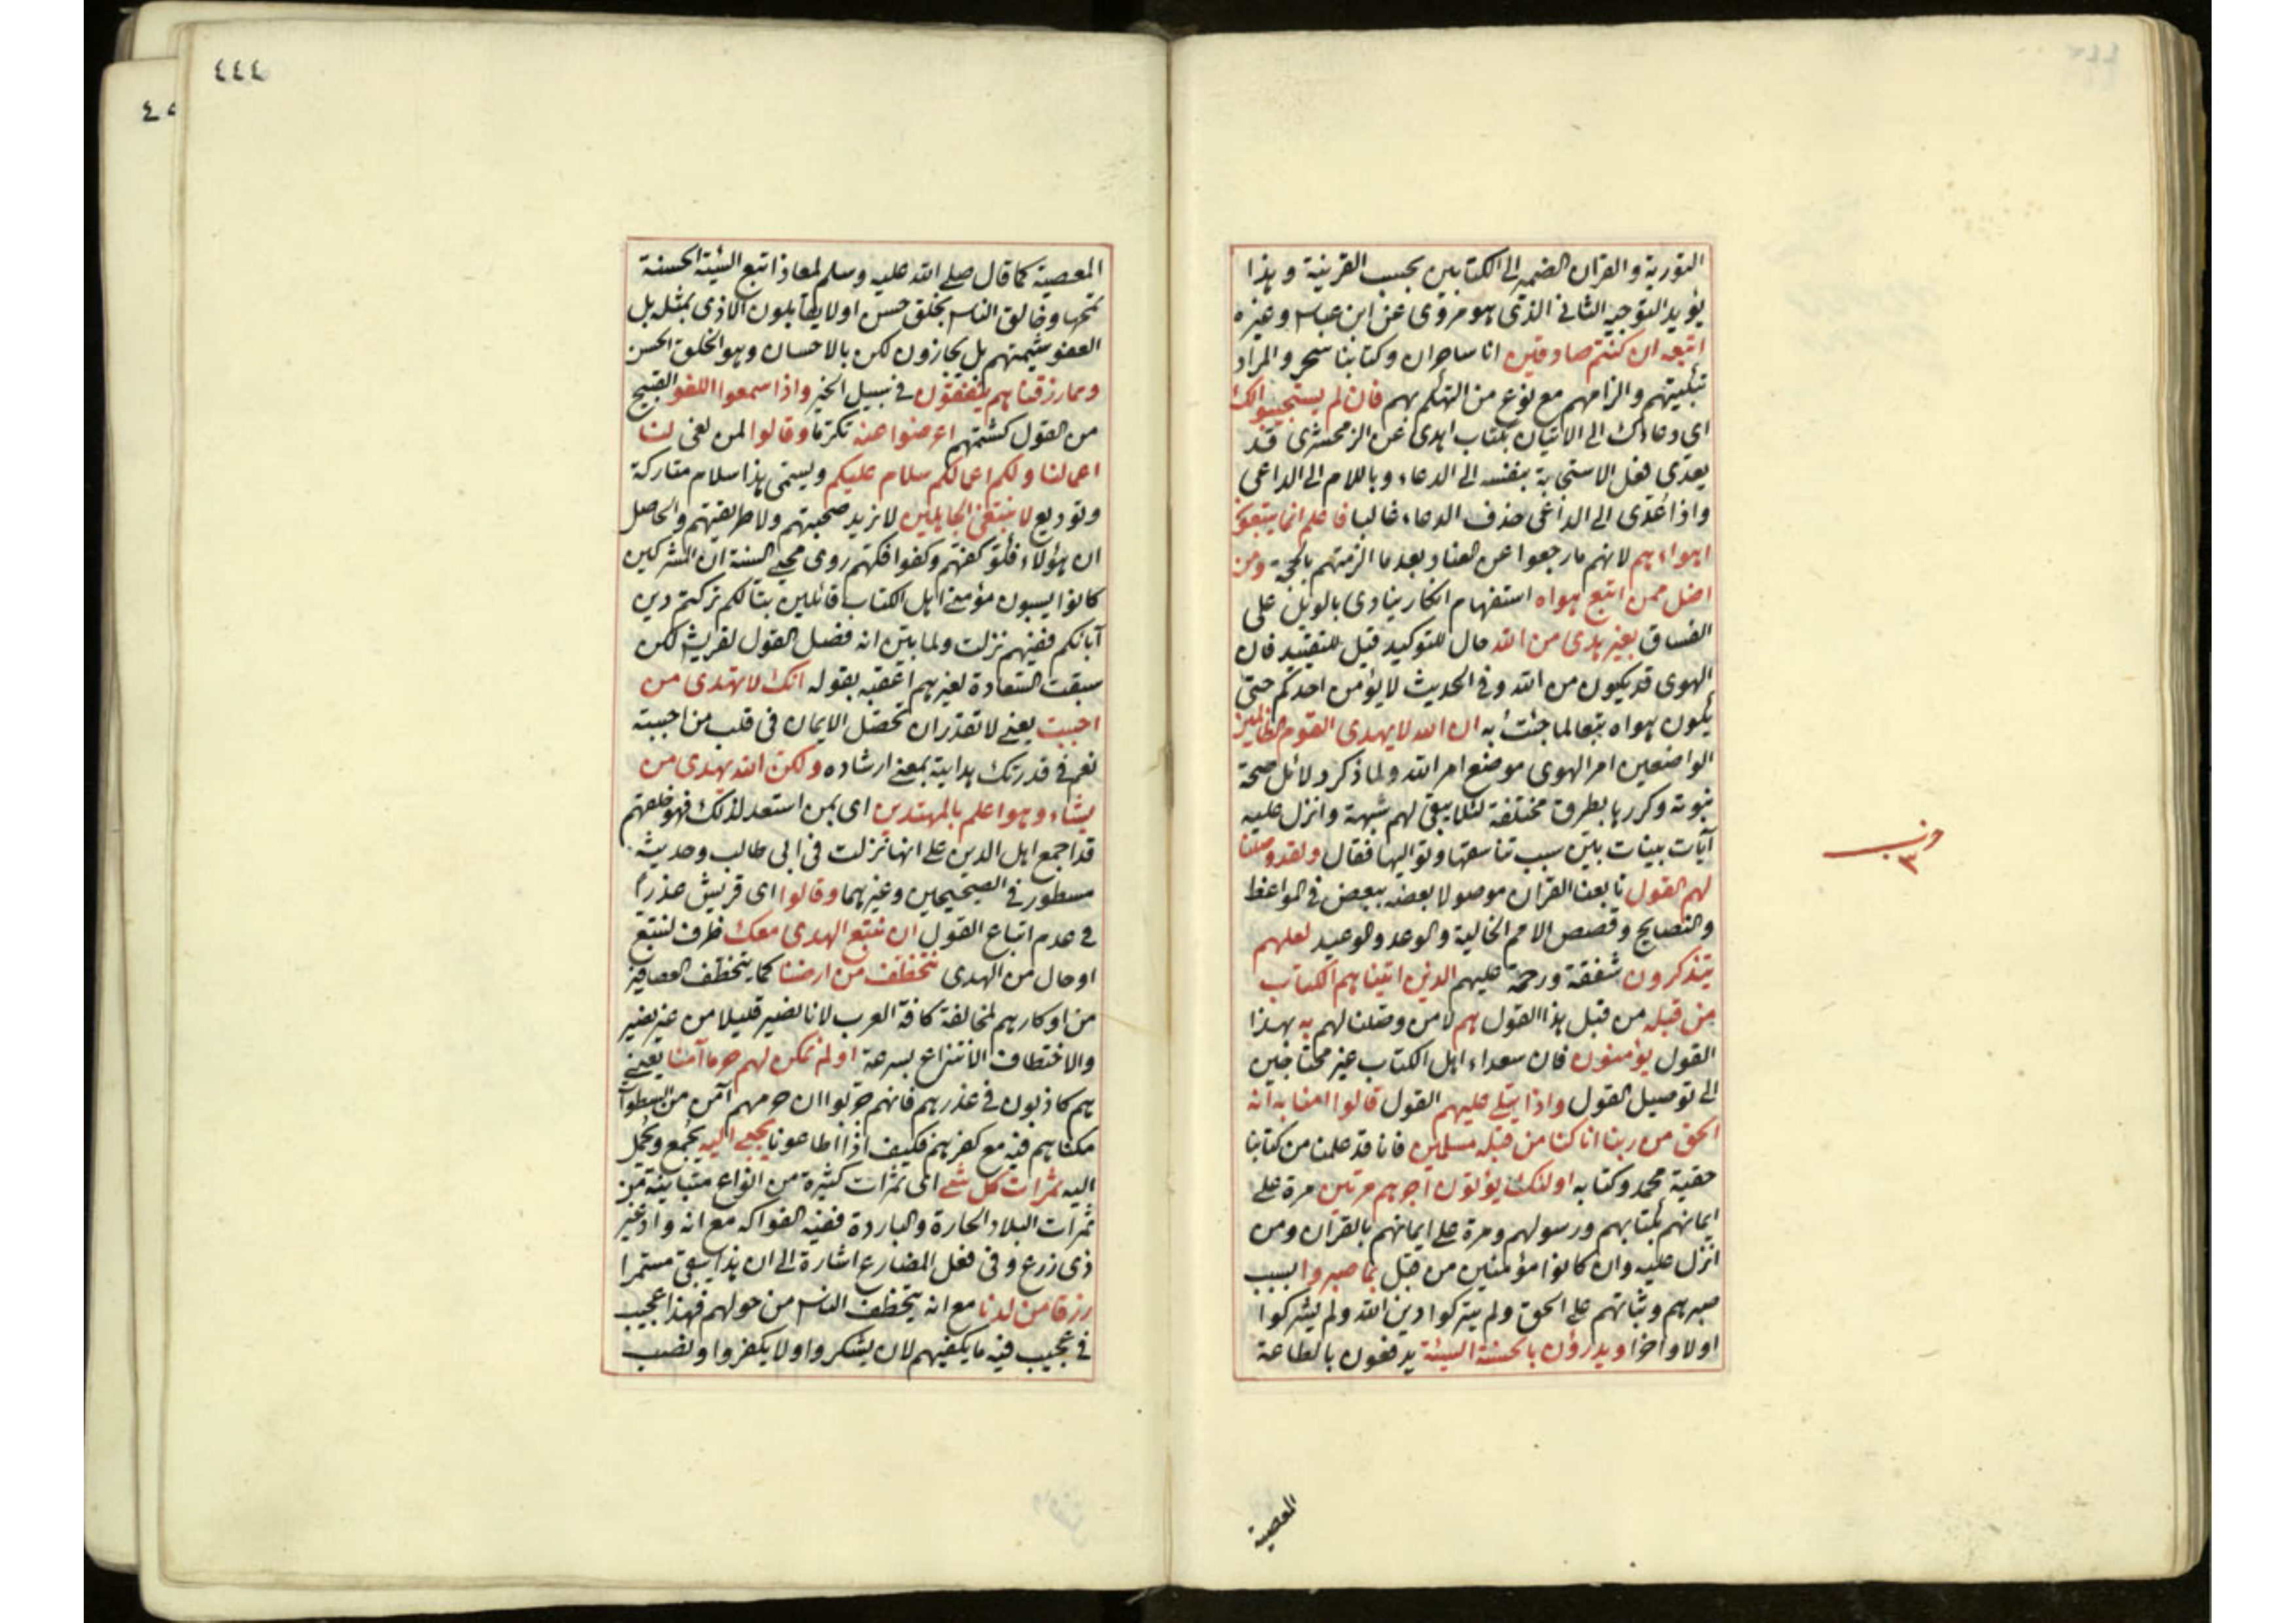 التورية والقران الضمير الى الكتابين بحسب القرينة وهذا
يؤيد التوجيه الثانى الذى هو مروى عن ابن عباس وغيره
اتبعه ان كنتم صادقين انا ساحران وكتابنا سحر والمراد
تبكيتهم والزامهم مع نوع من التهكم بهم فان لم يستجيبوا لك
اى دعاءك الى الاتيان بكتاب اهدى عن الزمحشرى قد
يعدى فعل الاستجابة بنفسه الى الدعاء وباللام الى الداعى
واذا عدى الى الداعى حذف الدعاء غالبا فاعلم انما يتبعون
اهواءهم لانهم مارجعوا عن العناد بعد ما الزمتهم بالحجة ومن
اضل ممن اتبع هواه استفهام انكار ينادى بالويل على
الفساق بغير هدى من الله حال للتوكيد قيل للتقييد فان
الهوى قد يكون من الله وفى الحديث لا يؤمن احدكم حتى
يكون هواه تبعا لما جئت به ان الله لا يهدى القوم الظالمين
الواضعين امر الهوى موضع امر الله ولما ذكر دلائل صحة
نبوته وكررها بطرق مختلفة لئلا يبقى لهم شبهة وانزل عليه
آيات بينات بين سبب تناسقها وتواليها فقال ولقد وصلنا
لهم القول تابعنا القران موصولا بعضه ببعض فى المواعظ
والنصايح وقصص الامم الخالية والوعد والوعيد لعلهم
يتذكرون شفقة ورحمة عليهم الذين اتيناهم الكتاب
من قبله من قبل هذا القول هم لا من وصلنا لهم به بهذا
القول يؤمنون فان سعداء اهل الكتاب غير محتاجين
الى توصيل القول واذا يتلى عليهم القول قالوا امنا به انه
الحق من ربنا انا كنا من قبله مسلمين فانا قد علمنا من كتابنا
حقية محمد وكتابه اولئك يؤتون اجرهم مرتين مرة على
ايمانهم بكتابهم ورسولهم ومرة على ايمانهم بالقران ومن
انزل عليه وان كانوا مؤمنين من قبل بما صبروا بسبب
صبرهم وثباتهم على الحق ولم يتركوا دين الله ولم يشركوا
اولا واخرا ويدرؤن بالحسنة السيئة يدفعون بالطاعة
المعصية
حزب
٣
٤٤٤
المعصية كما قال صلى الله عليه وسلم لمعاذ اتبع السيئة الحسنة
تمحها وخالق الناس بخلق حسن اولا يقابلون الاذى بمثله بل
العفو شيمتهم بل يجازون لكن بالاحسان وهو الخلق الحسن
ومما رزقناهم ينفقون فى سبيل الخير واذا سمعوا اللغو القبيح
من القول كشتمهم اعرضوا عنه تكرما وقالوا لمن لغى لنا
اعمالنا ولكم اعمالكم سلام عليكم ويسمى هذا سلام متاركة
وتوديع لا نبتغى الجاهلين لا نريد صحبتهم ولا طريقتهم والحاصل
ان هؤلاء وكفوا روى محيى السنة ان المشركين
كانوا يسبون مؤمنى اهل الكتاب قائلين تبا لكم تركتم دين
آبائكم ففيهم نزلت ولما بين انه فصل القول لقريش لكن
سبقت السعادة لغيرهم اعقبه بقوله انك لا تهدى من
احببت يعنى لا تقدر ان تحصل الايمان فى قلب من احببته
نعم فى قدرتك هداية بمعنى ارشاده ولكن الله يهدى من
يشاء وهو اعلم بالمهتدين اى بمن استعد لذلك
قد اجمع اهل الدين على انها نزلت فى ابى طالب وحديثه
مسطور فى الصحيحين وغيرهما وقالوا اى قريش عذرا
فى عدم اتباع القول ان نتبع الهدى معك ظرف لنتبع
او حال من الهدى نتخطف من ارضنا كما يتخطف العصافير
من اوكارهم لمخالفة كافة العرب لانا نصير قليلا من غير نصير
والاختطاف الانتزاع بسرعة اولم نمكن لهم حرما آمنا يعنى
هم كاذبون فى عذرهم فانهم جربوا ان حرمهم آمن من السطوات
مكناهم فيه مع كفرهم فكيف اذا اطاعونا يجبى اليه يجمع ويحمل
اليه ثمرات كل شئ اى ثمرات كثيرة من انواع متباينة من
ثمرات البلاد الحارة والباردة ففيه الفواكه مع انه واد غير
ذى زرع وفى فعل المضارع اشارة الى ان هذا يبقى مستمرا
رزقا من لدنا مع انه يتخطف الناس من حولهم فهذا عجيب
فى عجيب فيه ما يكفيهم لان يشكروا ولا يكفروا ونصب